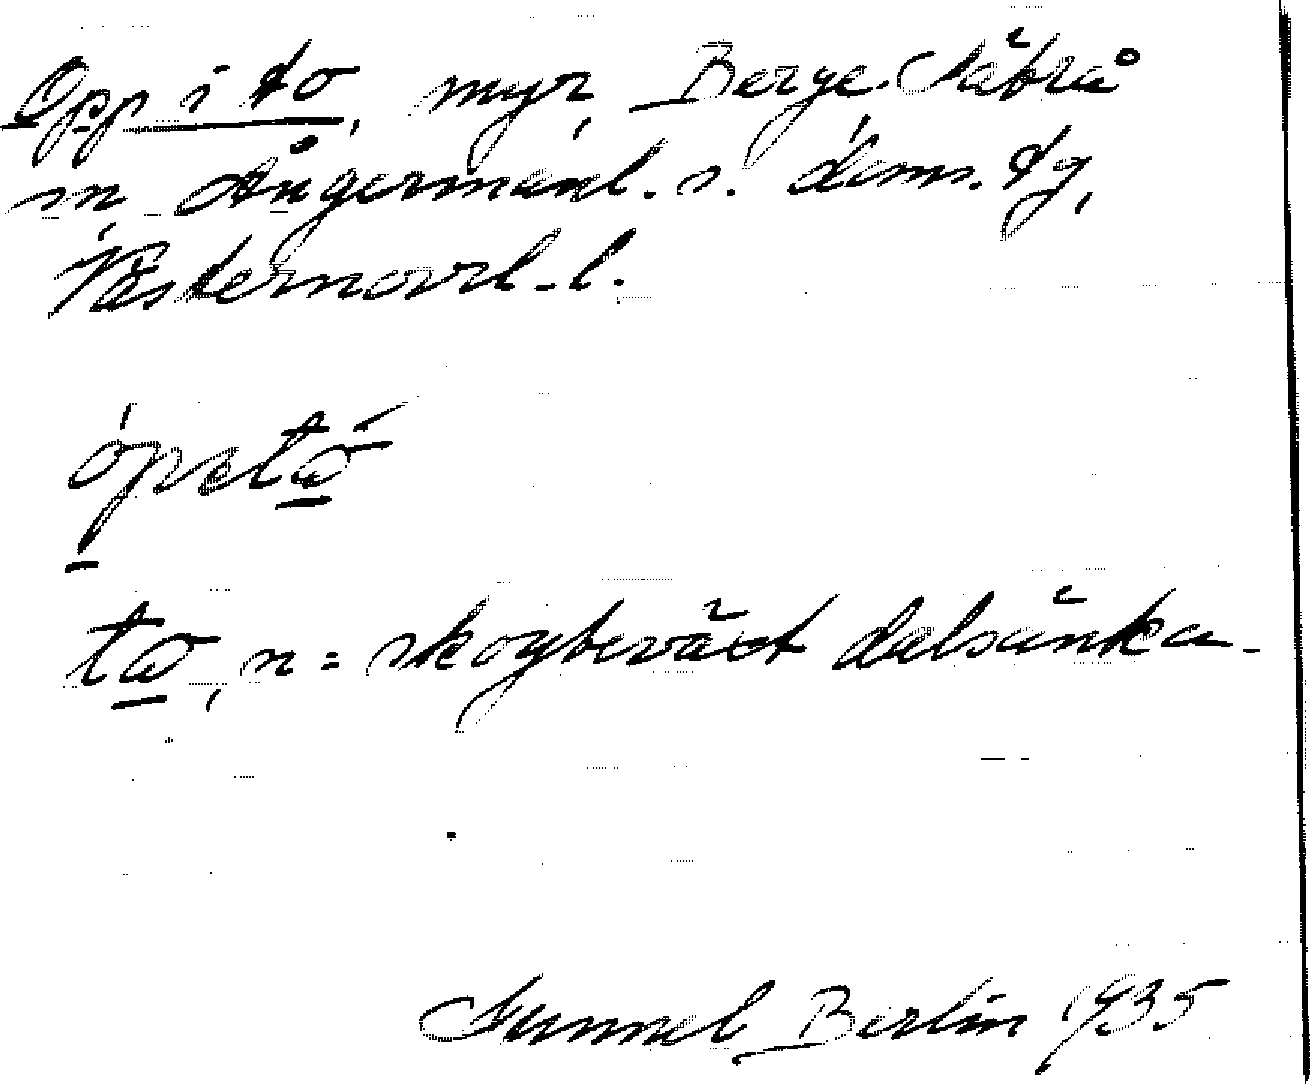 Opp i to, myr, Berge Sätra
sn Ångermanl. s. doms. dg,
Västernorrl. l.
ópetó
to, n = skogbeväxt dalsänka.
Gunnel Berlin 1935